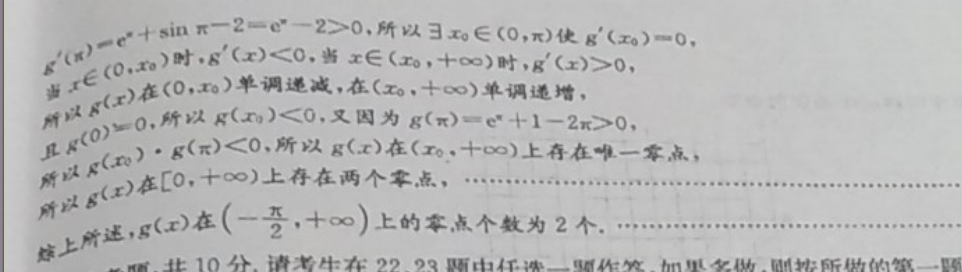 g′(π)=e^π+sin π-2=e^π-2>0,所以∃x₀∈(0,π)使 g′(x₀)=0,
当 x∈(0,x₀)时,g′(x)<0,当 x∈(x₀,+∞)时,g′(x)>0,
所以 g(x)在(0,x₀)单调递减,在(x₀,+∞)单调递增,
且 g(0)=0,所以 g(x₀)<0,又因为 g(π)=e^π+1-2π>0,
所以 g(x₀)·g(π)<0,所以 g(x)在(x₀,+∞)上存在唯一零点,
所以 g(x)在[0,+∞)上存在两个零点,
综上所述,g(x)在(-π/2,+∞)上的零点个数为 2 个.
共 10 分.请考生在 22、23 题中任选一题作答.如果多做,则按所做的第一题